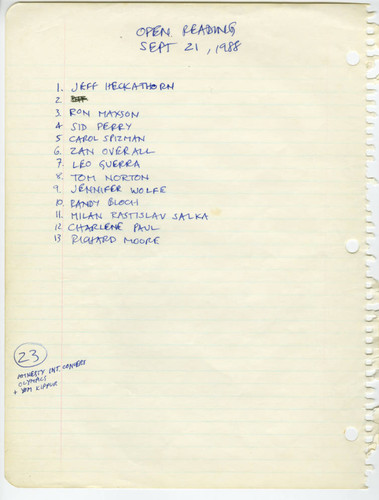 OPEN READING
SEPT 21, 1988
1. JEFF HECKATHORN
2
3. RON MAXSON
4 SID PERRY
5 CAROL SPIZMAN
6. ZAN OVERALL
7. LEO GUERRA
8. TOM NORTON
9. JENNIFER WOLFE
10. RANDY BLOCH
11. MILAN RASTISLAV SALKA
12 CHARLENE PAUL
13 RICHARD MOORE
23
AMNESTY INT. CONCERT
OLYMPICS
+ YOM KIPPUR